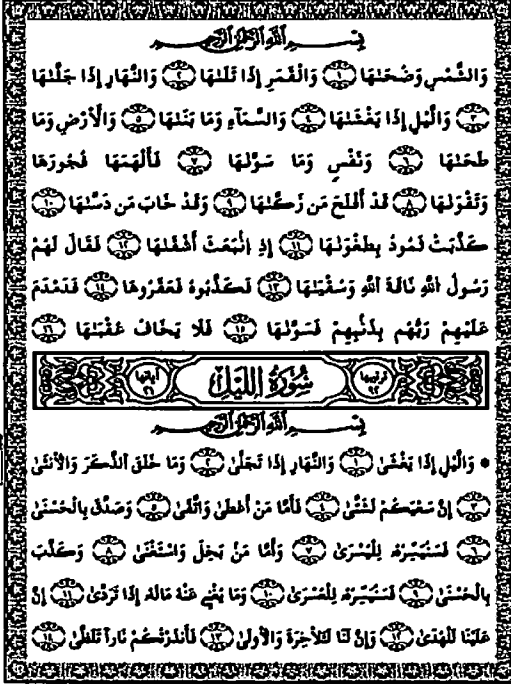 بِسْمِ اللَّهِ الرَّحْمَٰنِ الرَّحِيمِ
وَالشَّمْسِ وَضُحَىٰهَا ١ وَالْقَمَرِ إِذَا تَلَىٰهَا ٢ وَالنَّهَارِ إِذَا جَلَّىٰهَا
٣ وَالَّيْلِ إِذَا يَغْشَىٰهَا ٤ وَالسَّمَآءِ وَمَا بَنَىٰهَا ٥ وَالْأَرْضِ وَمَا
طَحَىٰهَا ٦ وَنَفْسٍ وَمَا سَوَّىٰهَا ٧ فَأَلْهَمَهَا فُجُورَهَا
وَتَقْوَىٰهَا ٨ قَدْ أَفْلَحَ مَن زَكَّىٰهَا ٩ وَقَدْ خَابَ مَن دَسَّىٰهَا ١٠
كَذَّبَتْ ثَمُودُ بِطَغْوَىٰهَا ١١ إِذِ انۢبَعَثَ أَشْقَىٰهَا ١٢ فَقَالَ لَهُمْ
رَسُولُ اللَّهِ نَاقَةَ اللَّهِ وَسُقْيَىٰهَا ١٣ فَكَذَّبُوهُ فَعَقَرُوهَا ١٤ فَدَمْدَمَ
عَلَيْهِمْ رَبُّهُم بِذَنۢبِهِمْ فَسَوَّىٰهَا ١٥ فَلَا يَخَافُ عُقْبَىٰهَا ١٦
ترتيبها ٩٢ سُورَةُ اللَّيْلِ آياتها ٢١
بِسْمِ اللَّهِ الرَّحْمَٰنِ الرَّحِيمِ
* وَالَّيْلِ إِذَا يَغْشَىٰ ١ وَالنَّهَارِ إِذَا تَجَلَّىٰ ٢ وَمَا خَلَقَ الذَّكَرَ وَالْأُنثَىٰ
٣ إِنَّ سَعْيَكُمْ لَشَتَّىٰ ٤ فَأَمَّا مَنْ أَعْطَىٰ وَاتَّقَىٰ ٥ وَصَدَّقَ بِالْحُسْنَىٰ
٦ فَسَنُيَسِّرُهُۥ لِلْيُسْرَىٰ ٧ وَأَمَّا مَنۢ بَخِلَ وَاسْتَغْنَىٰ ٨ وَكَذَّبَ
بِالْحُسْنَىٰ ٩ فَسَنُيَسِّرُهُۥ لِلْعُسْرَىٰ ١٠ وَمَا يُغْنِي عَنْهُ مَالُهُۥ إِذَا تَرَدَّىٰ ١١ إِنَّ
عَلَيْنَا لَلْهُدَىٰ ١٢ وَإِنَّ لَنَا لَلْآخِرَةَ وَالْأُولَىٰ ١٣ فَأَنذَرْتُكُمْ نَارًا تَلَظَّىٰ ١٤